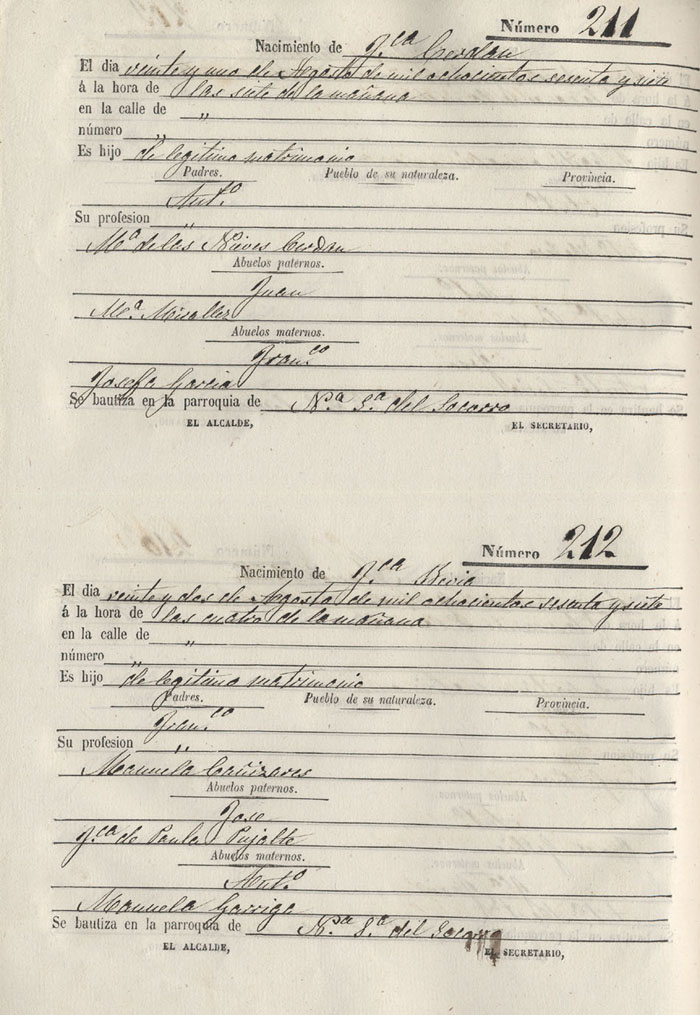 Número 211
Nacimiento de F.ca Cerdan
El dia veinte y uno de Agosto de mil ochocientos sesenta y siete
á la hora de las siete de la mañana
en la calle de "
número "
Es hijo de legitimo matrimonio
Padres. Pueblo de su naturaleza. Provincia.
Ant.o
Su profesion "
M.a de las Nieves Cerdan
Abuelos paternos.
Juan
M.a Miralles
Abuelos maternos.
Fran.co
Josefa Garcia
Se bautiza en la parroquia de N.a S.a del Socorro
EL ALCALDE, EL SECRETARIO,
Número 212
Nacimiento de F.ca Bevia
El dia veinte y dos de Agosto de mil ochocientos sesenta y siete
á la hora de las cuatro de la mañana
en la calle de "
número "
Es hijo de legitimo matrimonio
Padres. Pueblo de su naturaleza. Provincia.
Fran.co
Su profesion "
Manuela Cañizares
Abuelos paternos.
Jose
F.ca de Paula Pujalte
Abuelos maternos.
Ant.o
Manuela Garrigo
Se bautiza en la parroquia de N.a S.a del Socorro
EL ALCALDE, EL SECRETARIO,